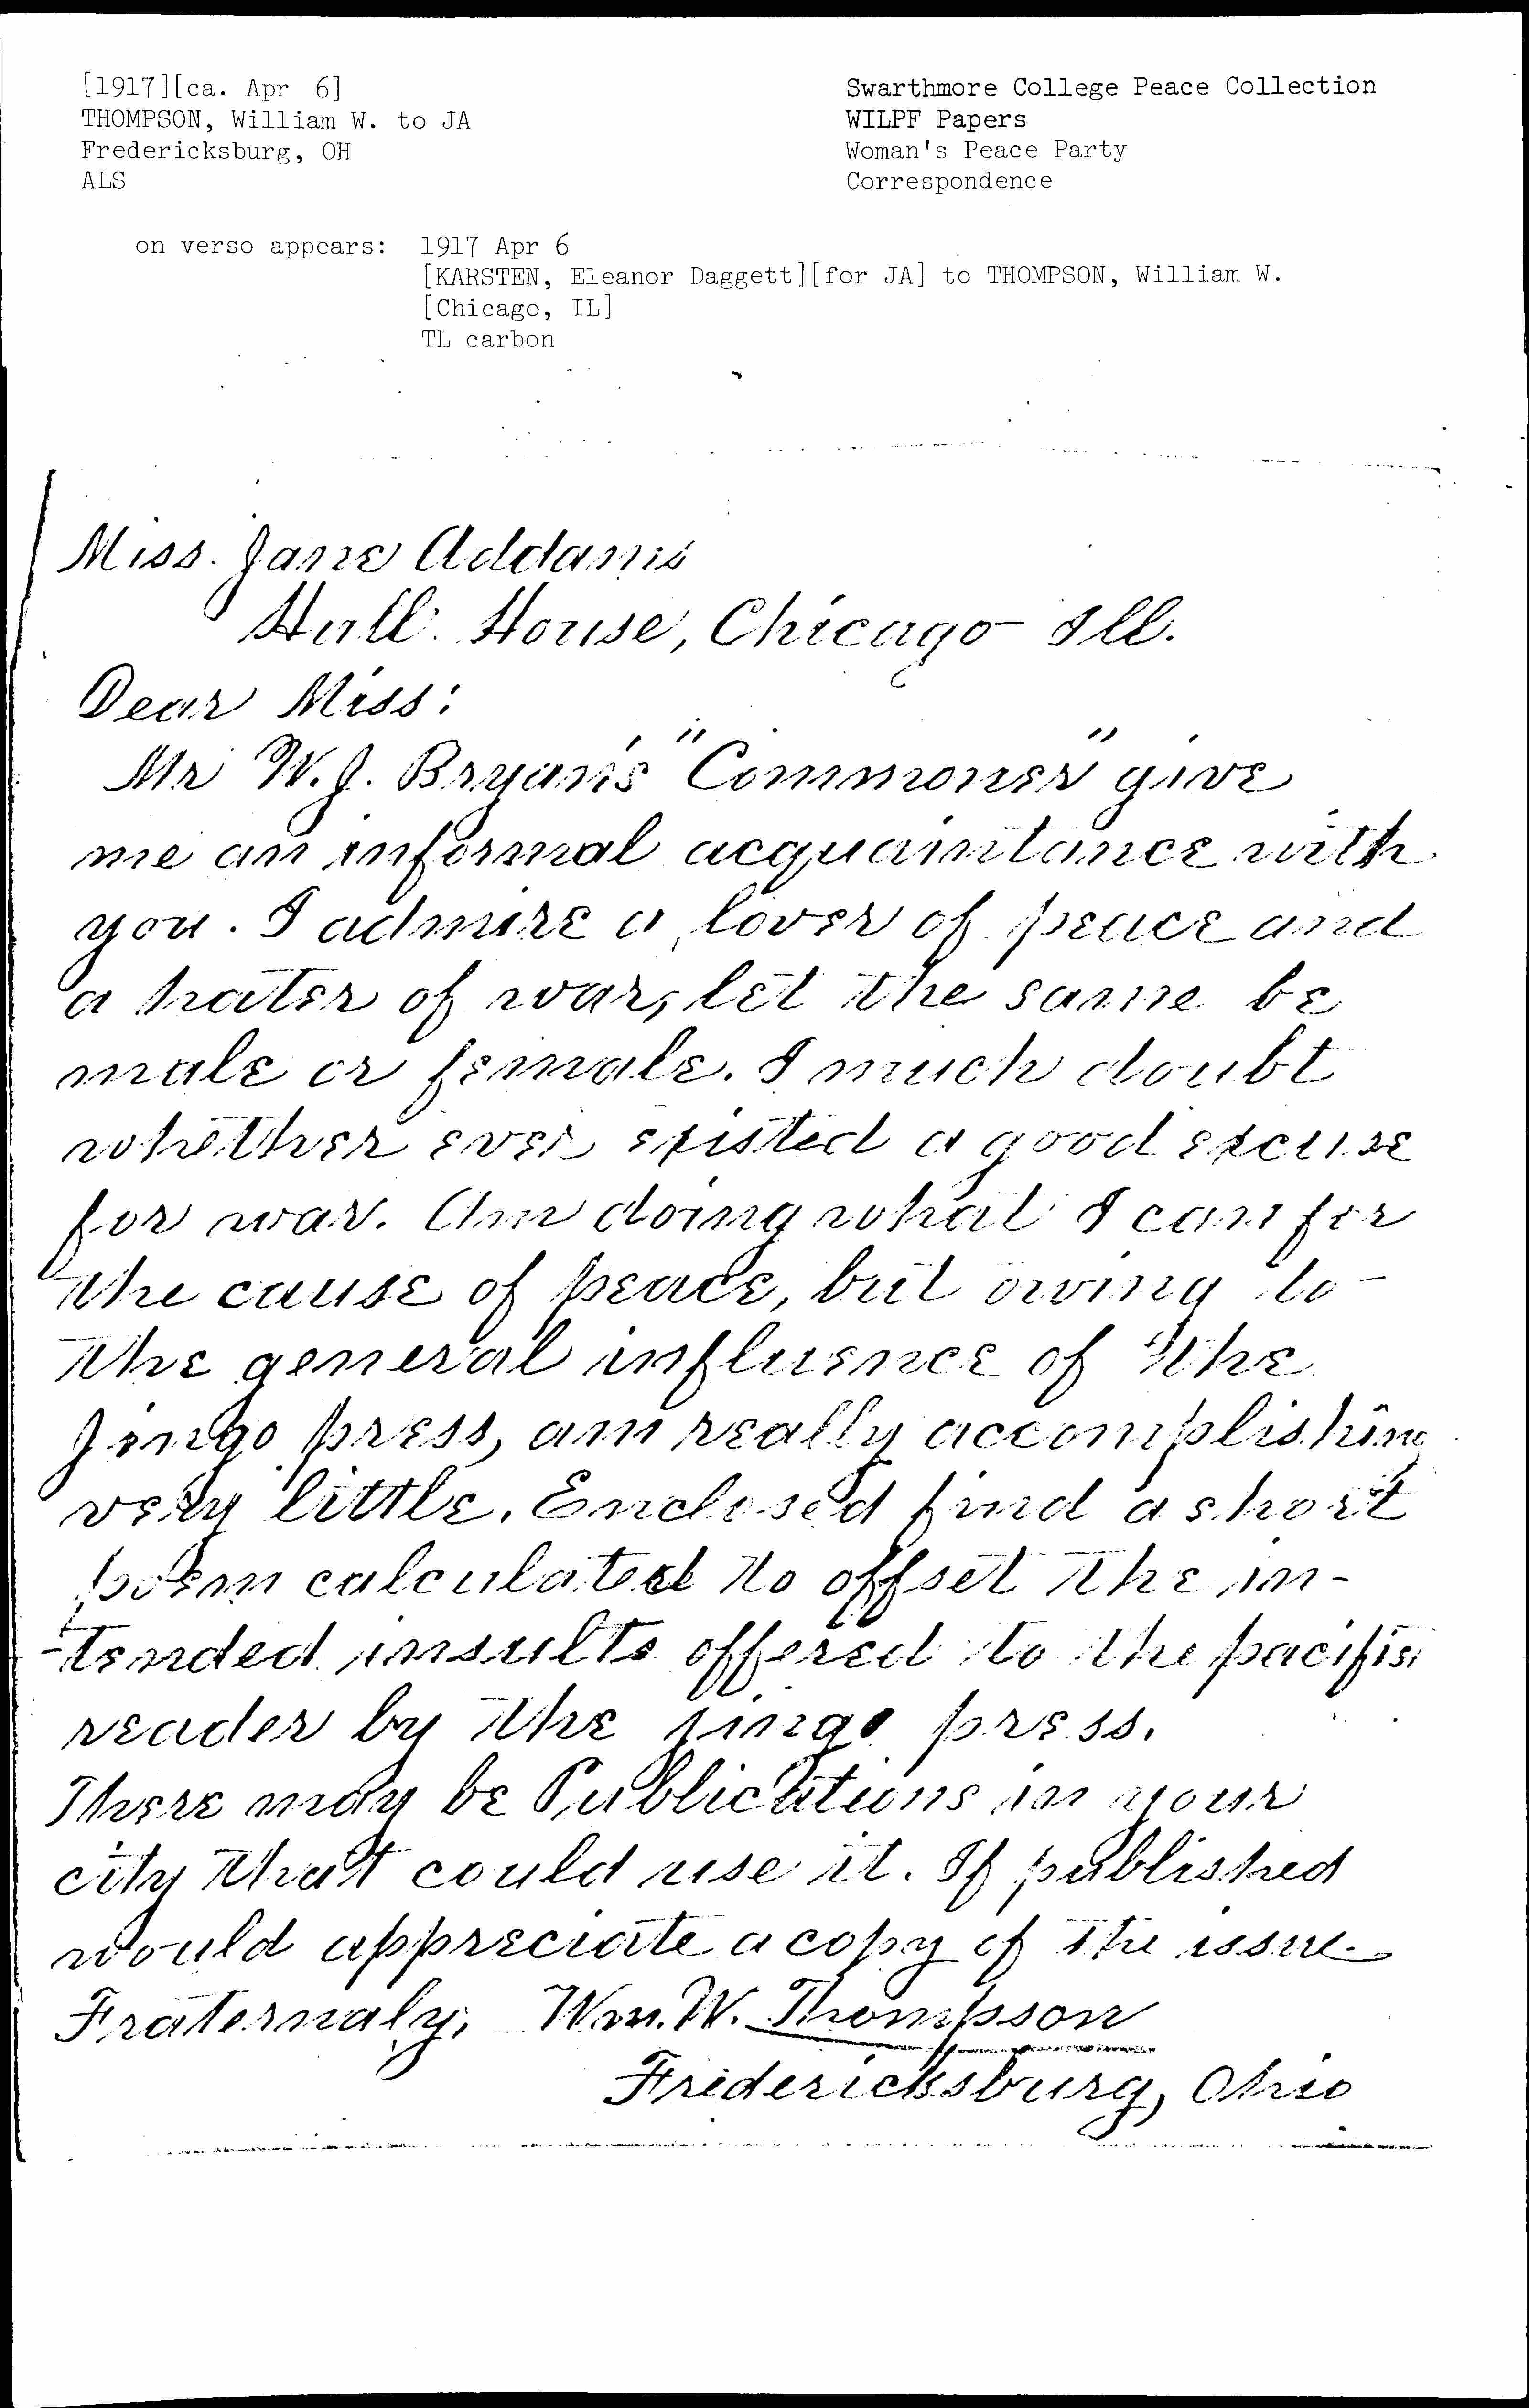 [1917][ca. Apr 6]
THOMPSON, William W. to JA
Fredericksburg, OH
ALS
Swarthmore College Peace Collection
WILPF Papers
Woman's Peace Party
Correspondence
on verso appears: 1917 Apr 6
[KARSTEN, Eleanor Daggett][for JA] to THOMPSON, William W.
[Chicago, IL]
TL carbon
Miss. Jane Addams
Hull House, Chicago Ill.
Dear Miss:
Mr W. J. Bryan's "Commoner" give
me an informal acquaintance with
you. I admire a lover of peace and
a hater of war, let the same be
male or female. I much doubt
whether ever existed a good excuse
for war. Am doing what I can for
the cause of peace, but owing to
the general influence of the
Jingo press, am really accomplishing
very little. Enclosed find a short
poem calculated to offset the in-
-tended insults offered to the pacifis
reader by the jingo press.
There may be Publications in your
city that could use it. If published
would appreciate a copy of the issue.
Fraternaly, Wm. W. Thompson
Fredericksburg, Ohio